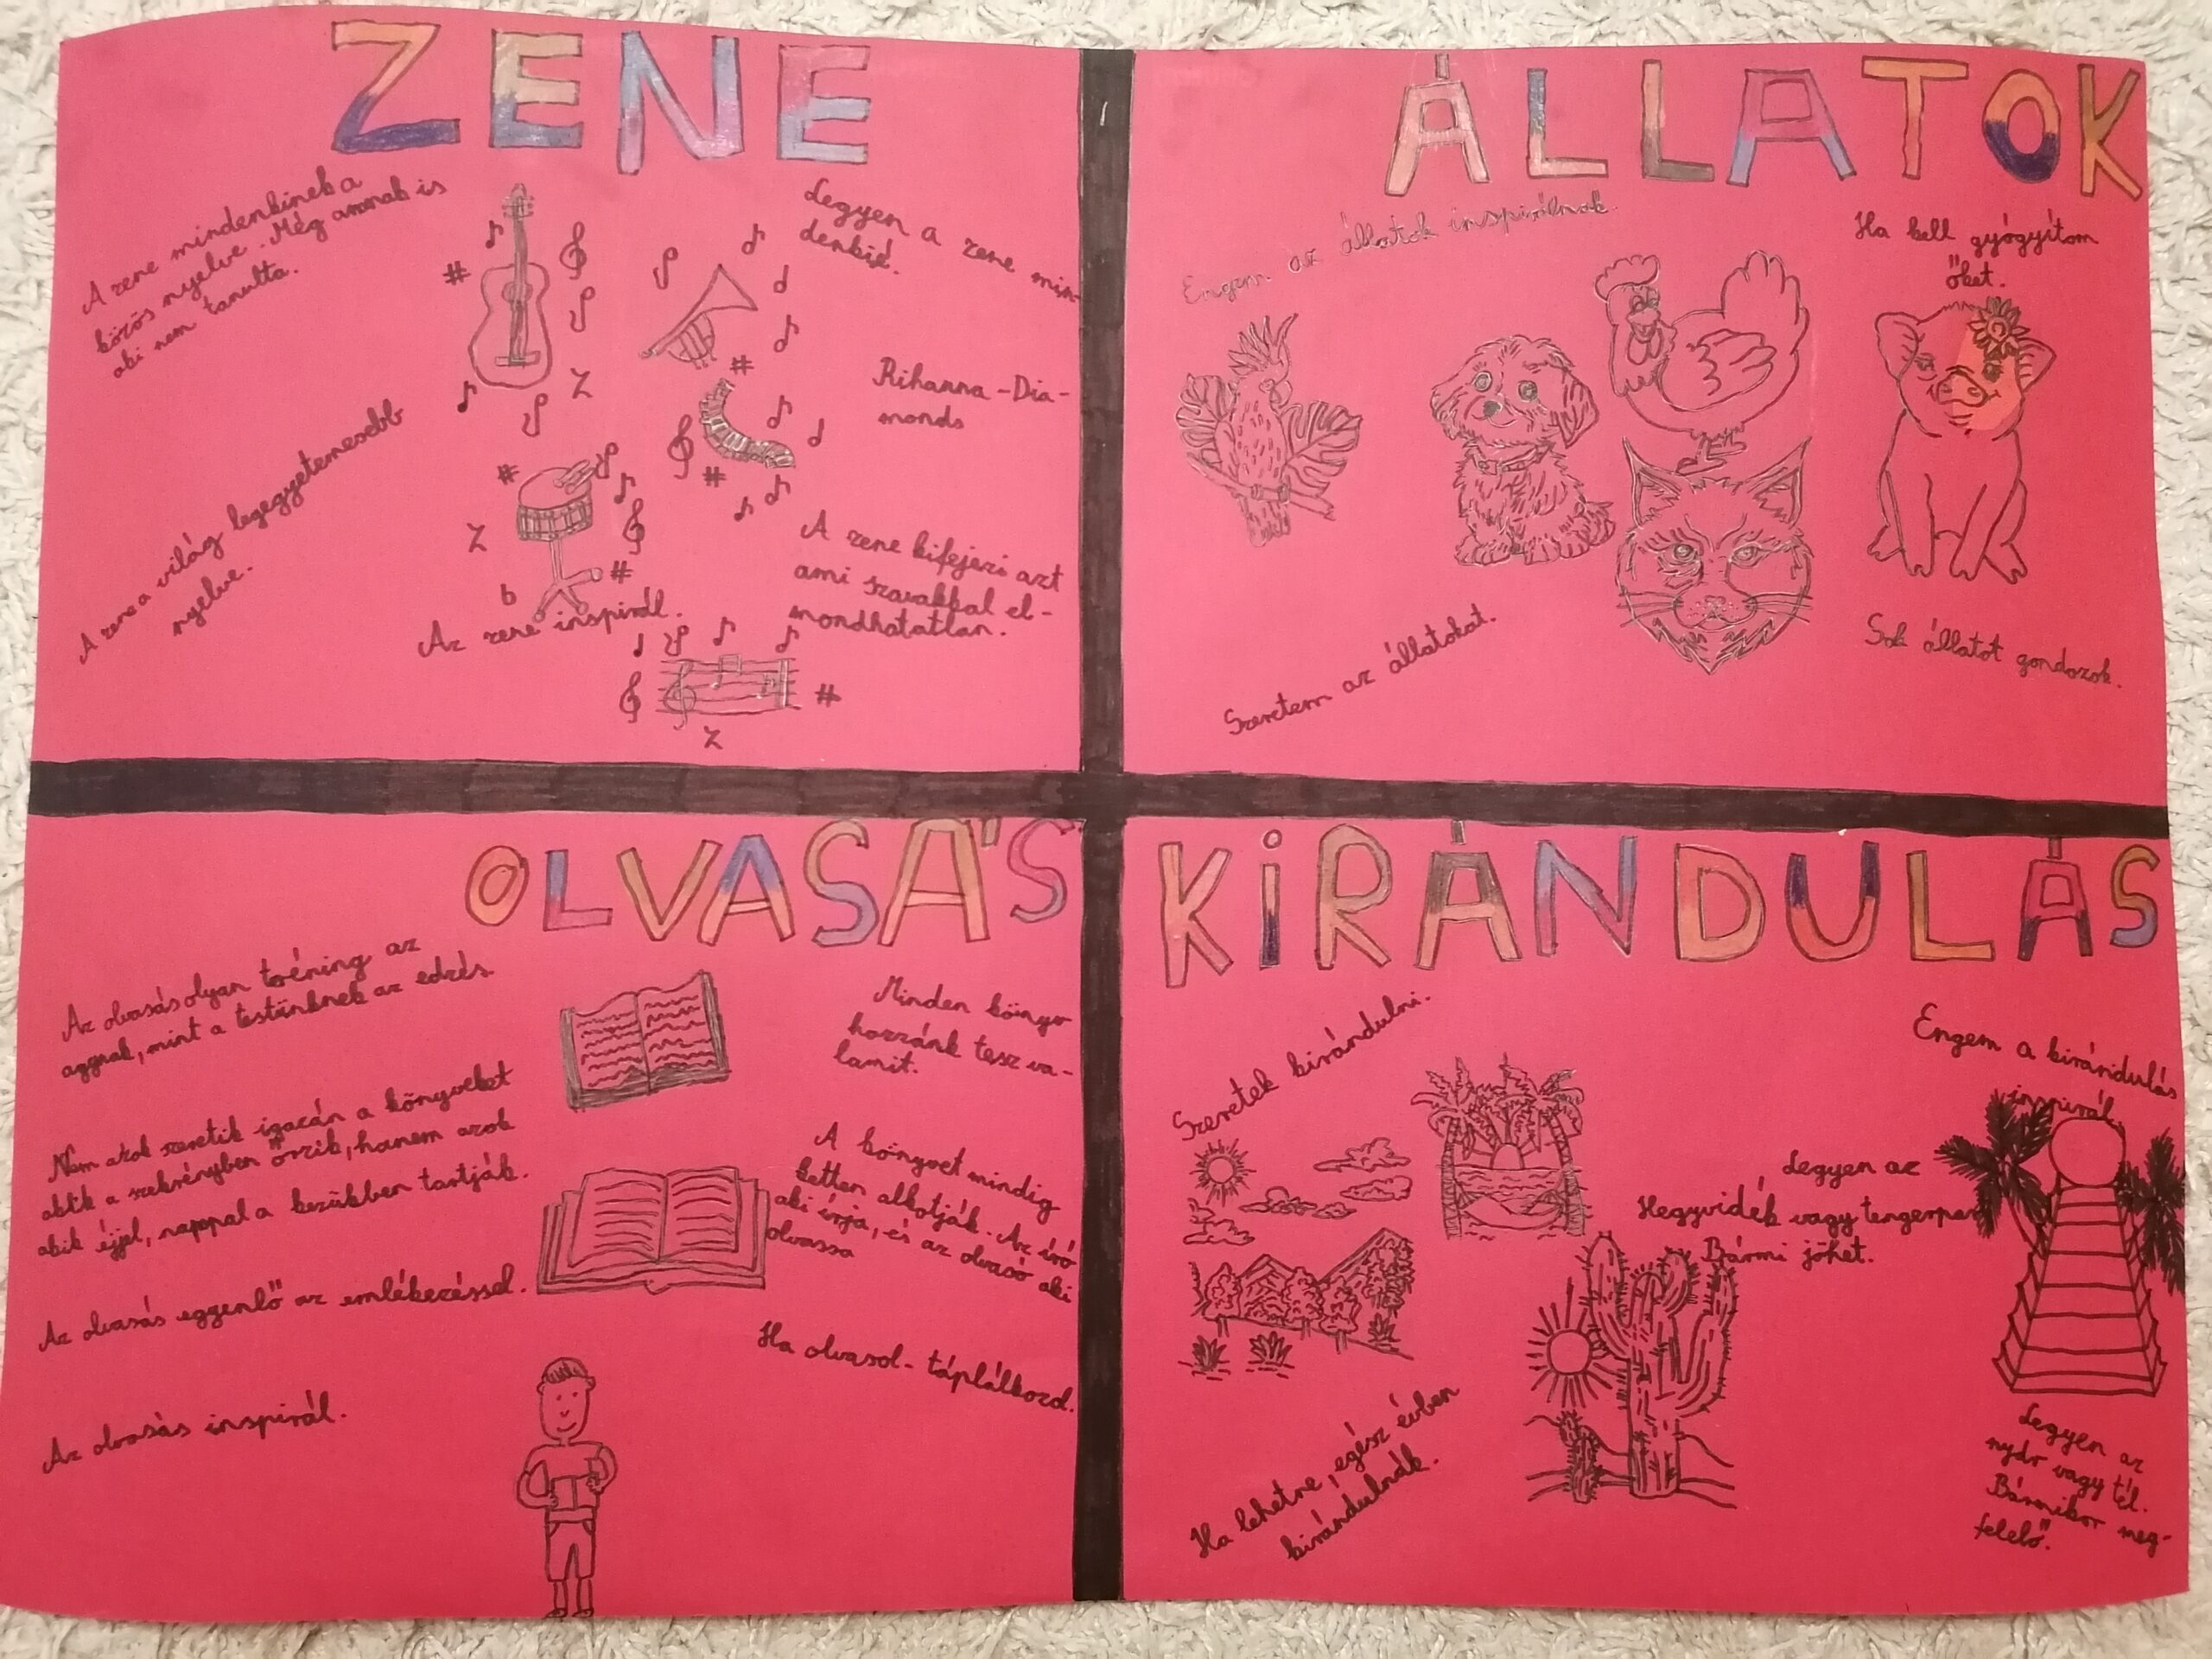 ZENE
A zene mindenkinek a
közös nyelve. Még annak is
aki nem tanulta.
Legyen a zene min-
denkié.
Rihanna - Dia-
monds
A zene a világ legegyetemesebb
nyelve.
A zene kifejezi azt
ami szavakkal el-
mondhatatlan.
Az zene inspirál.
ÁLLATOK
Engem az állatok inspirálnak.
Ha kell gyógyítom
őket.
Szeretem az állatokat.
Sok állatot gondozok.
OLVASÁS
Az olvasás olyan tréning az
agynak, mint a testünknek az edzés
Nem azok szeretik igazán a könyveket
akik a szekrényben őrzik, hanem azok
akik éjjel, nappal a kezükben tartják.
Az olvasás egyenlő az emlékezéssel.
Az olvasás inspirál.
Minden könyv
hozzánk tesz va-
lamit.
A könyvet mindig
ketten alkotják. Az író
aki írja, és az olvasó aki
olvassa
Ha olvasol - táplálkozol.
KIRÁNDULÁS
Szeretek kirándulni.
Engem a kirándulás
inspirál.
Legyen az
Hegyvidék vagy tengerpart
Bármi jöhet.
Ha lehetne, egész évben
kirándulnék.
Legyen az
nyár vagy tél.
Bármikor meg-
felelő.